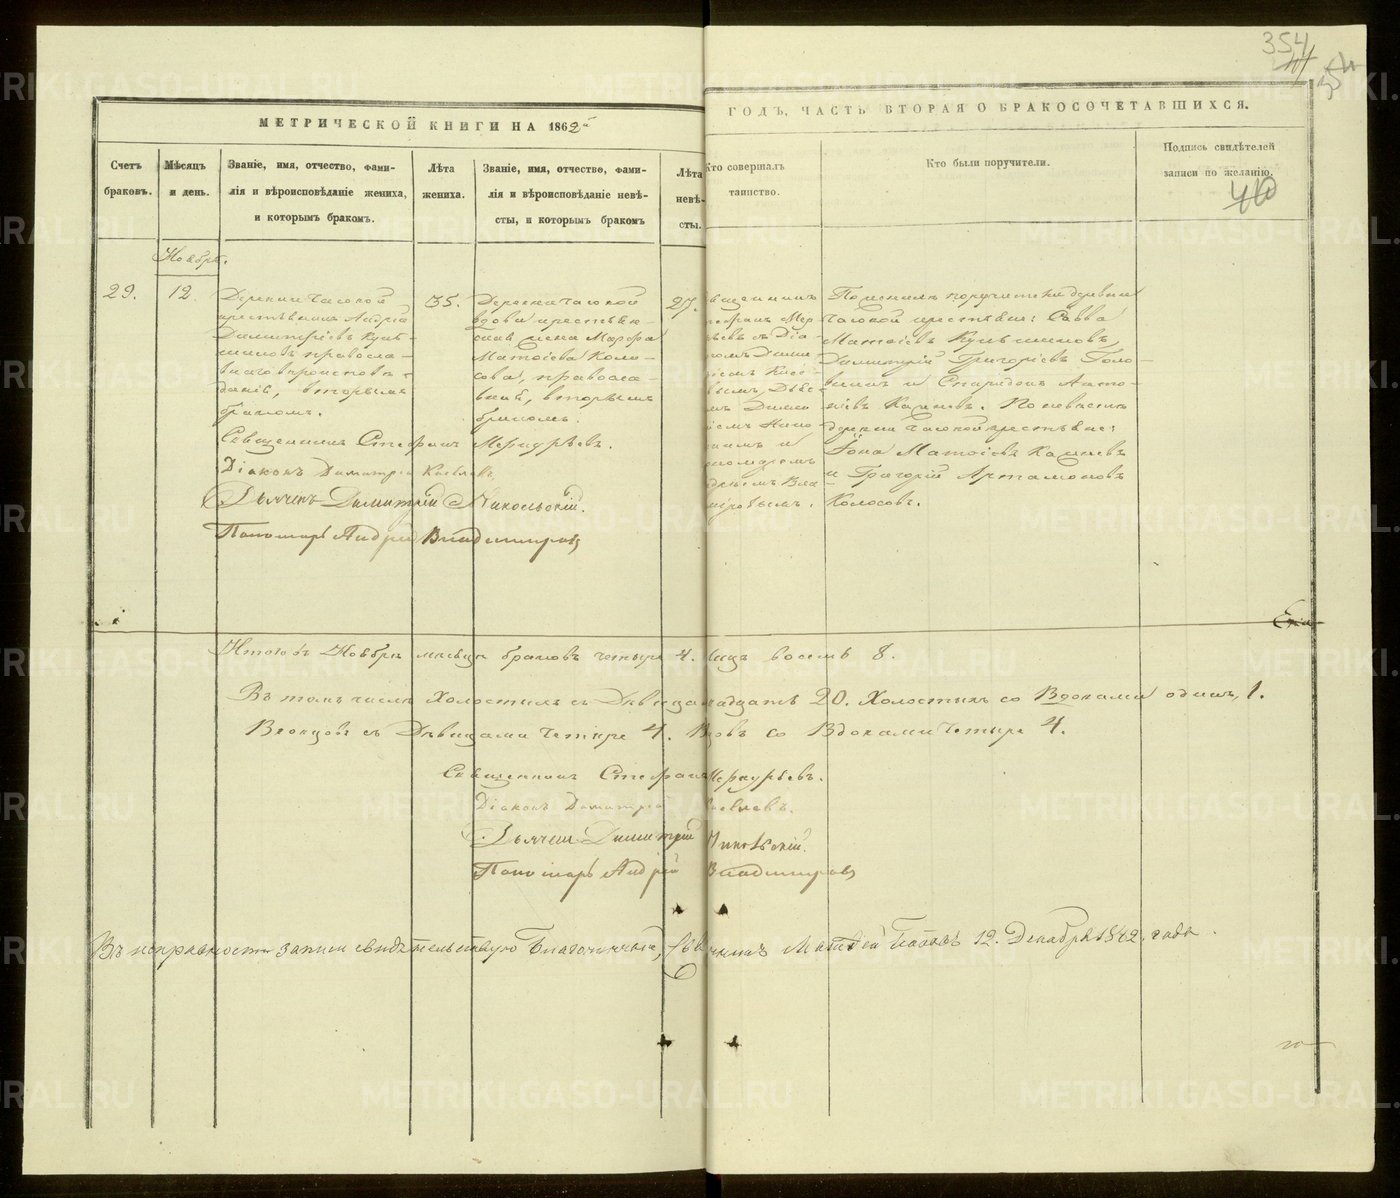 354
МЕТРИЧЕСКОЙ КНИГИ НА 1862й
ГОДЪ, ЧАСТЬ ВТОРАЯ О БРАКОСОЧЕТАВШИХСЯ.
Счетъ браковъ.
Мѣсяцъ и день.
Званіе, имя, отчество, фами-
лія и вѣроисповѣданіе жениха,
и которымъ бракомъ.
Лѣта
жениха.
Званіе, имя, отчество, фами-
лія и вѣроисповѣданіе невѣ-
сты, и которымъ бракомъ
Лѣта
невѣ-
сты.
Кто совершалъ
таинство.
Кто были поручители.
Подпись свидѣтелей
записи по желанію.
40
Ноябрь.
29.
12.
Деревни Часовой
крестьянинъ Андрей
Димитріевъ Куль-
шиновъ правосла-
внаго вѣроисповѣ-
данія, вторымъ
бракомъ.
35.
Деревни Часовой
вдова крестьян-
ская жена Марфа
Матѳіева Коло-
сова, православ-
ная, вторымъ
бракомъ.
27.
священникъ
Стефанъ Мер
рьевъ съ Діа
кономъ Дими
ріемъ
вымъ, Дьяч-
мъ Димит
іемъ Нико
скимъ и
ономаремъ
дреемъ Вла
міровымъ.
По женихѣ поручители деревни
Часовой крестьяне: Савва
Матѳіевъ Кульшиновъ,
Димитрій Григоріевъ Голо-
винъ и Спиридонъ Анто-
ніевъ Казневъ. По невѣстѣ
деревни Часовой крестьяне:
Іона Матѳіевъ Казневъ
и Григорій Артамоновъ
Колосовъ.
Священникъ Стефанъ Меркурьевъ.
Діаконъ Димитрій Киселевъ.
Дьячекъ Димитрій Никольскій.
Пономарь Андрей Владимировъ
Итого въ Ноябрѣ месяцѣ браковъ четыре 4. лицъ восемь 8.
Въ томъ числѣ Холостыхъ съ Дѣвицами двадцать 20. Холостыхъ со Вдовами одинъ, 1.
Вдовцовъ съ Дѣвицами Четыре 4. Вдовцовъ со Вдовами Четыре 4.
Священникъ Стефанъ Меркурьевъ.
Діаконъ Димитрій Киселевъ.
Дьячекъ Димитрій Никольскій.
Пономарь Андрей Владимировъ
Въ исправности записи свидѣтельствую Благочинный, Священникъ Матѳей Поповъ 12. Декабря 1862. года.
METRIKI.GASO-URAL.RU